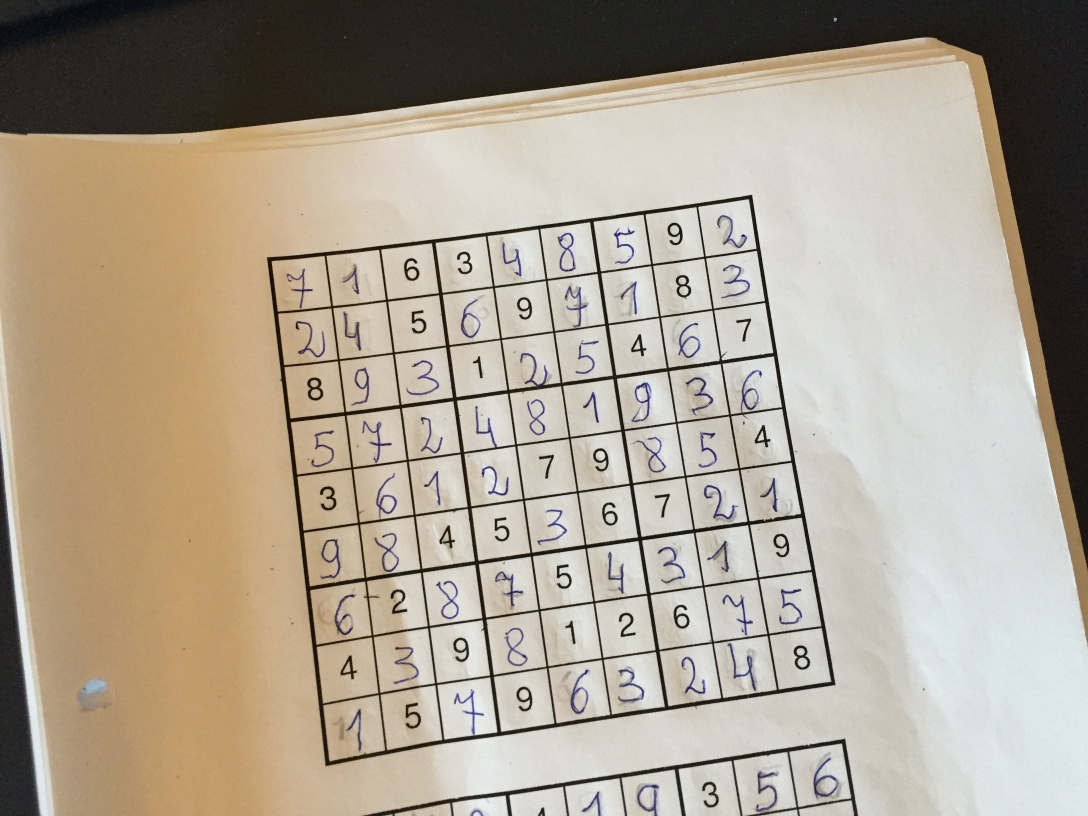 7 1 6 3 4 8 5 9 2
2 4 5 6 9 7 1 8 3
8 9 3 1 2 5 4 6 7
5 7 2 4 8 1 9 3 6
3 6 1 2 7 9 8 5 4
9 8 4 5 3 6 7 2 1
6 2 8 7 5 4 3 1 9
4 3 9 8 1 2 6 7 5
1 5 7 9 6 3 2 4 8
1 9 3 5 6